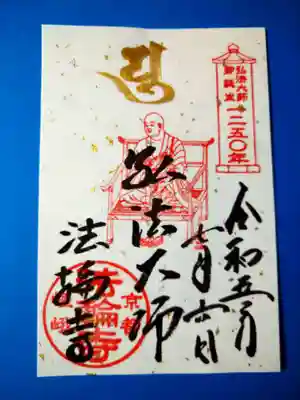 弘法大師
御誕生
一二五〇年
令和五年
七月六日
弘法大師
法輪寺
京都
法輪寺